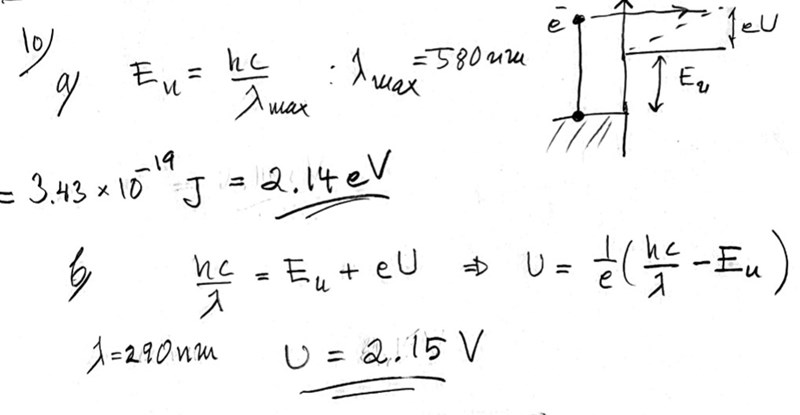 10)
a) E_u = hc/λ_max : λ_max = 580 nm
e⁻ eU
E_u
= 3.43 × 10⁻¹⁹ J = 2.14 eV
b) hc/λ = E_u + eU ⇒ U = 1/e (hc/λ - E_u)
λ = 290 nm U = 2.15 V